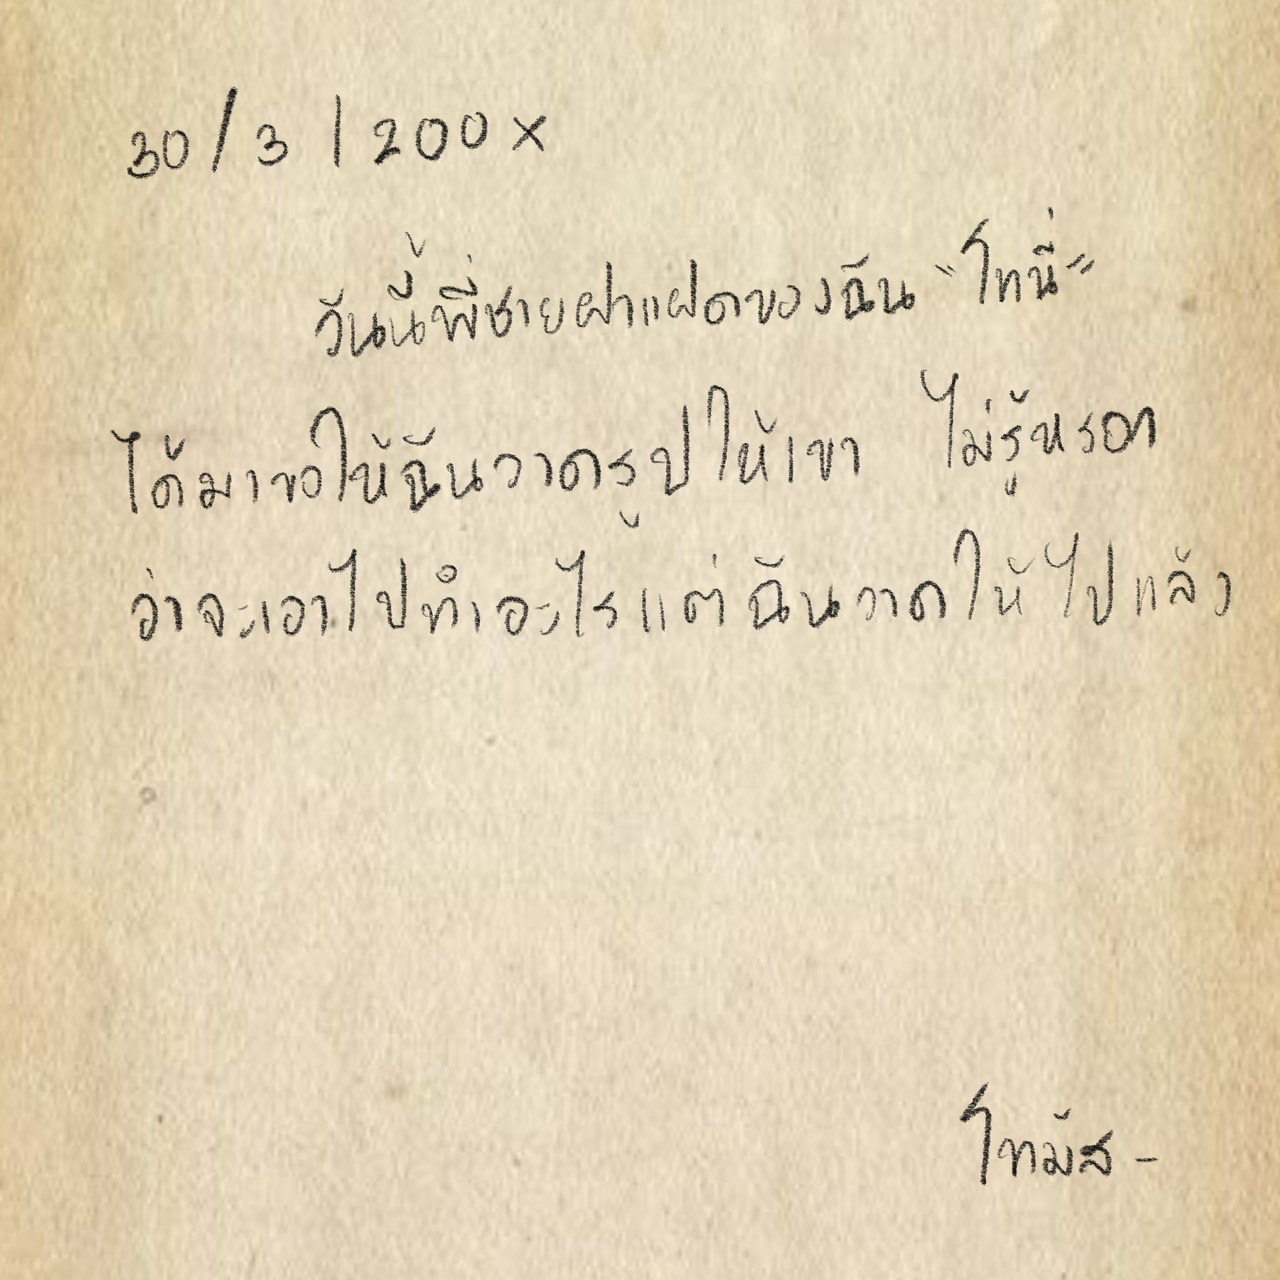 30/3/200x
วันนี้พี่ชายฝาแฝดของฉัน "โทนี่"
ได้มาขอให้ฉันวาดรูปให้เขา ไม่รู้หรอก
ว่าจะเอาไปทำอะไรแต่ฉันวาดให้ไปแล้ว
โทมัส-